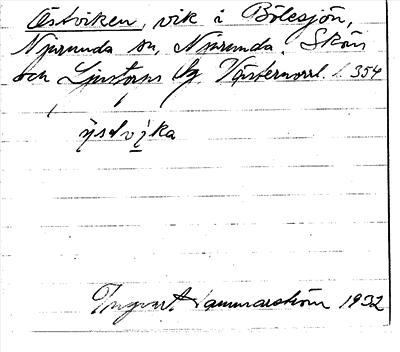 Östviken, vik i Bölesjön,
Njurunda sn, Njurunda, Sköns
och Ljustorps tg. Västernorrl. l. 354
ystvika
Ingvar Hammarström 1932